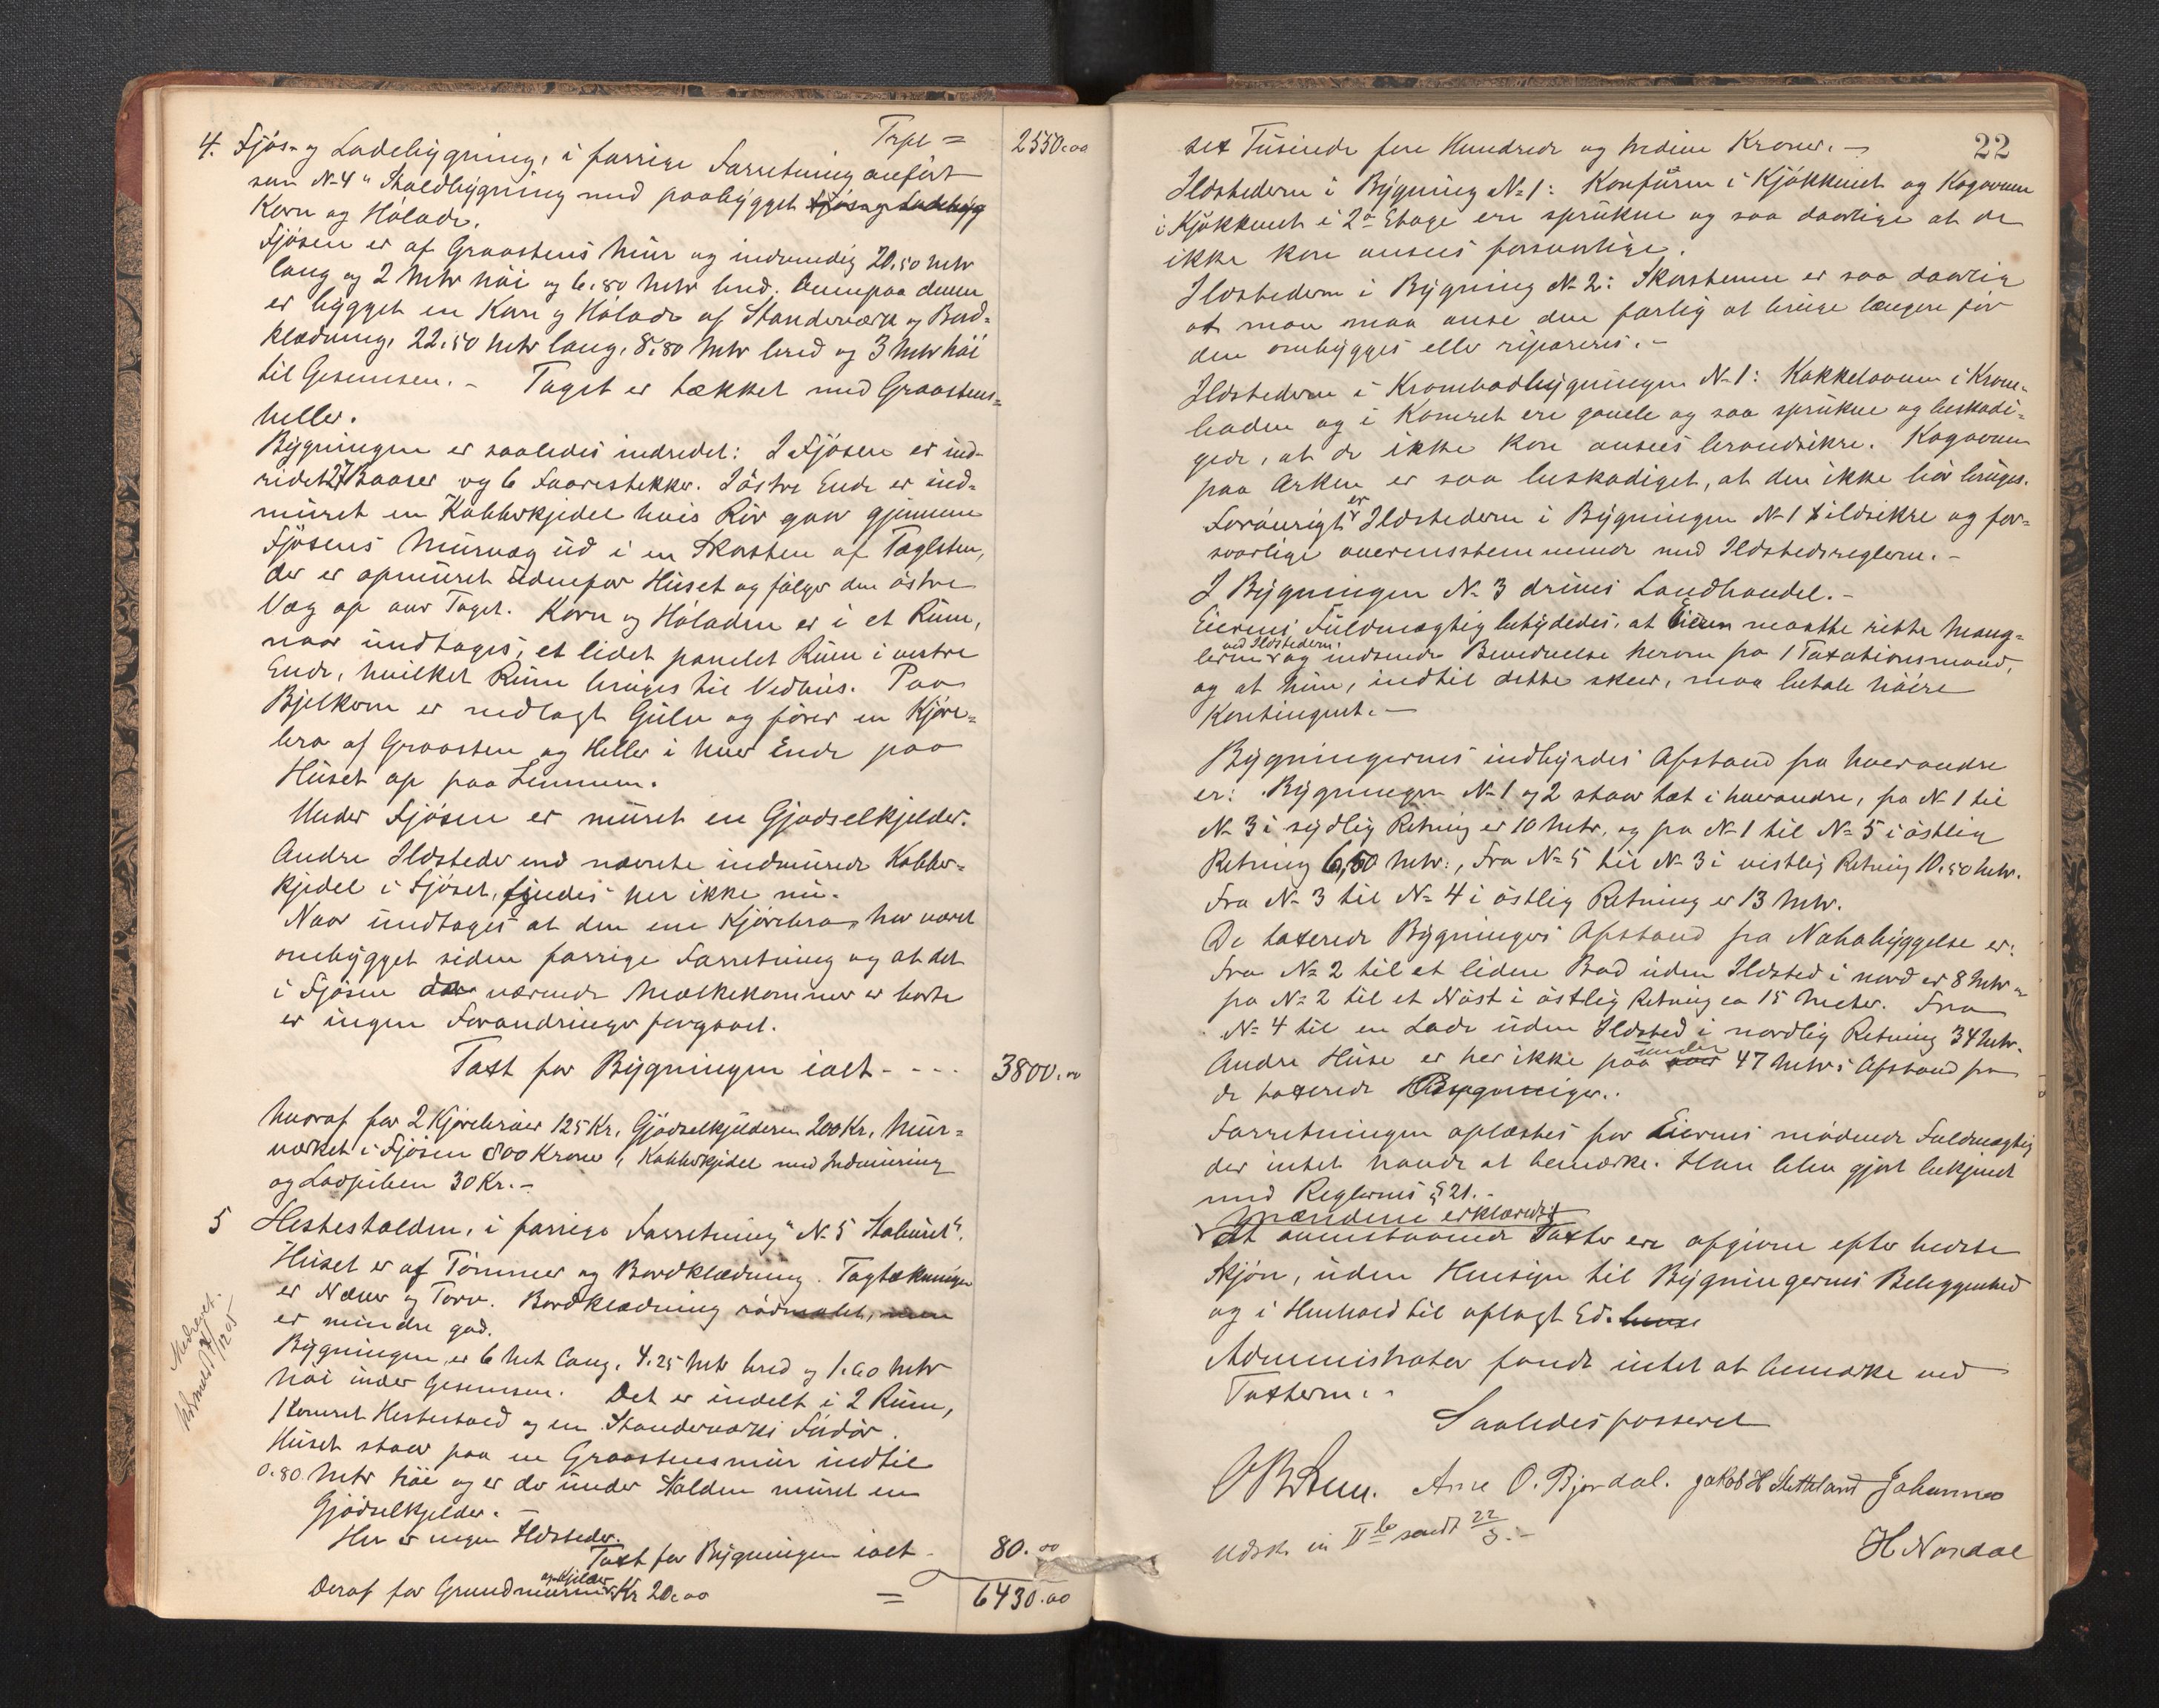 Trpt = 2550.00
4. Fjøs- og Ladebygning, i forrige Forretning anført
som N. 4 "Staldbygning med paabygget Fjøs og Ladebyg
Korn og Hølade.
Fjøsen er af Graastens Mur og indvendig 20.50 Mtr
lang og 2 Mtr høi og 6.80 Mtr bred. Ovenpaa denne
er bygget en Korn og Hølade af Standerværk og Bord-
klædning, 22.50 Mtr lang, 8.80 Mtr bred og 3 Mtr høi
til Gesimsen. - Taget er tækket med Graastens=
heller.
Bygningen er saaledes indredet: I Fjøsen er ind-
redet 27 Baaser og 6 Faarestekker. I østre Ende er ind-
muret en Kobberkjedel hvis Rør gaar gjennem
Fjøsens Murvæg ud i en Skorsten af Teglsten,
der er opmuret udenfor Huset og følger den østre
Væg op over Taget. Korn og Høladen er i et Rum,
naar undtages, et lidet panelet Rum i vestre
Ende, hvilket Rum bruges til Vedhus. Paa
Bjelkerne er nedlagt Gulv og fører en Kjøre-
bro af Graasten og Heller i hver Ende paa
Huset op paa Lemmen.
Under Fjøsen er muret en Gjødselkjelder.
Andre Ildsteder end nævnte indmurede Kobber-
kjedel i Fjøset, findes her ikke nu.
Naar undtages at den ene Kjørebro har været
ombygget siden forrige Forretning og at det
i Fjøsen da værende Melkekammer er borte
er ingen Forandringer foregaaet.
Taxt for Bygningen ialt - - - 3800.00
hvoraf for 2 Kjørebroer 125 Kr, Gjødselkjelderen 200 Kr, Mur-
værket i Fjøsen 800 Kroner, Kobberkjedel med Indmuring
og Laagpiben 30 Kr. -
5 Hestestalden, i forrige Forretning "N. 5 Stalhuset".
Huset er af Tømmer og Bordklædning. Tagtækningen
er Næver og Torv. Bordklædning rødmalet, men
er mindre god.
Bygningen er 6 Met lang, 4.25 Mtr bred og 1.60 Mtr
høi under Gesimsen. Det er indelt i 2 Rum,
1 tømret Hestestald og en Standerværks Fødør.
Huset staar paa en Graastensmur indtil
0.80 Mtr høi og er der under Stalden muret en
Gjødselkjelder. -
Her er ingen Ildsteder.
Taxt for Bygningen ialt - 80.00
Deraf for Grundmuren og Kjelder Kr 20.00 = 6430.00
22
sex Tusinde fire Hundrede og tredive Kroner. -
Ildstederne i Bygning N. 1: Komfuren i Kjøkkenet og Kogovnen
i Kjøkkenet i 2den Etage ere sprukne og saa daarlige at de
ikke kan ansees forsvarlige.
Ildstederne i Bygning N. 2: Skorstenen er saa daarlig
at man maa anse den farlig at bruge længere før
den ombygges eller repareres. -
Ildstederne i Krambodbygningen N. 1: Kakkelovnen i Kram-
boden og i Kammeret ere gamle og saa sprukne og beskadi-
gede, at de ikke kan ansees brandsikre. Kogovnen
paa Arken er saa beskadiget, at den ikke bør bruges.
Forøvrigt er Ildstederne i Bygningen N. 1 ildsikre og for-
svarlige overensstemmende med Ildstedsreglerne. -
I Bygningen N. 3 drives Landhandel. -
Eierens Fuldmægtig betydedes, at Eieren maatte rette Mang-
lerne ved Ildstederne og indsende Bevidnelse herom fra 1 Taxationsmand,
og at hun, indtil dette skeer, maa betale høiere
Kontingent. -
Bygningernes indbyrdes Afstand fra hverandre
er: Bygningen N. 1 og 2 staar tæt i hverandre, fra N. 1 til
N. 3 i sydlig Retning er 10 Mtr, og fra N. 1 til N. 5 i østlig
Retning 6,50 Mtr., Fra N. 5 til N. 3 i vestlig Retning 10.50 Mtr.
Fra N. 3 til N. 4 i østlig Retning er 13 Mtr.
De taxerede Bygningers Afstand fra Nabobyggelse er:
Fra N. 2 til et liden Bod uden Ildsted i nord er 8 Mtr -
fra N. 2 til et Nøst i østlig Retning ca 15 Meter. Fra
N. 4 til en Lade uden Ildsted i nordlig Retning 34 Mtr.
Andre Huse er her ikke paa under over 47 Mtrs Afstand fra
de taxerede Bygninger.
Forretningen oplæstes for Eierens mødende Fuldmægtig
der intet havde at bemærke. Han blev gjort bekjendt
med Reglernes § 21. -
Mændene erklærede
at ovenstaaende Taxter ere afgivne efter bedste
Skjøn, uden Hensyn til Bygningernes Beleggenhed
og i Henhold til aflagt Ed.
Administrator fandt intet at bemærke ved
Taxterne. -
Saaledes passeret
Arne O. Bjordal. Jakob H Stetteland Johannes
H Nordal
Udsk. in IIlo sendt 22/3. -